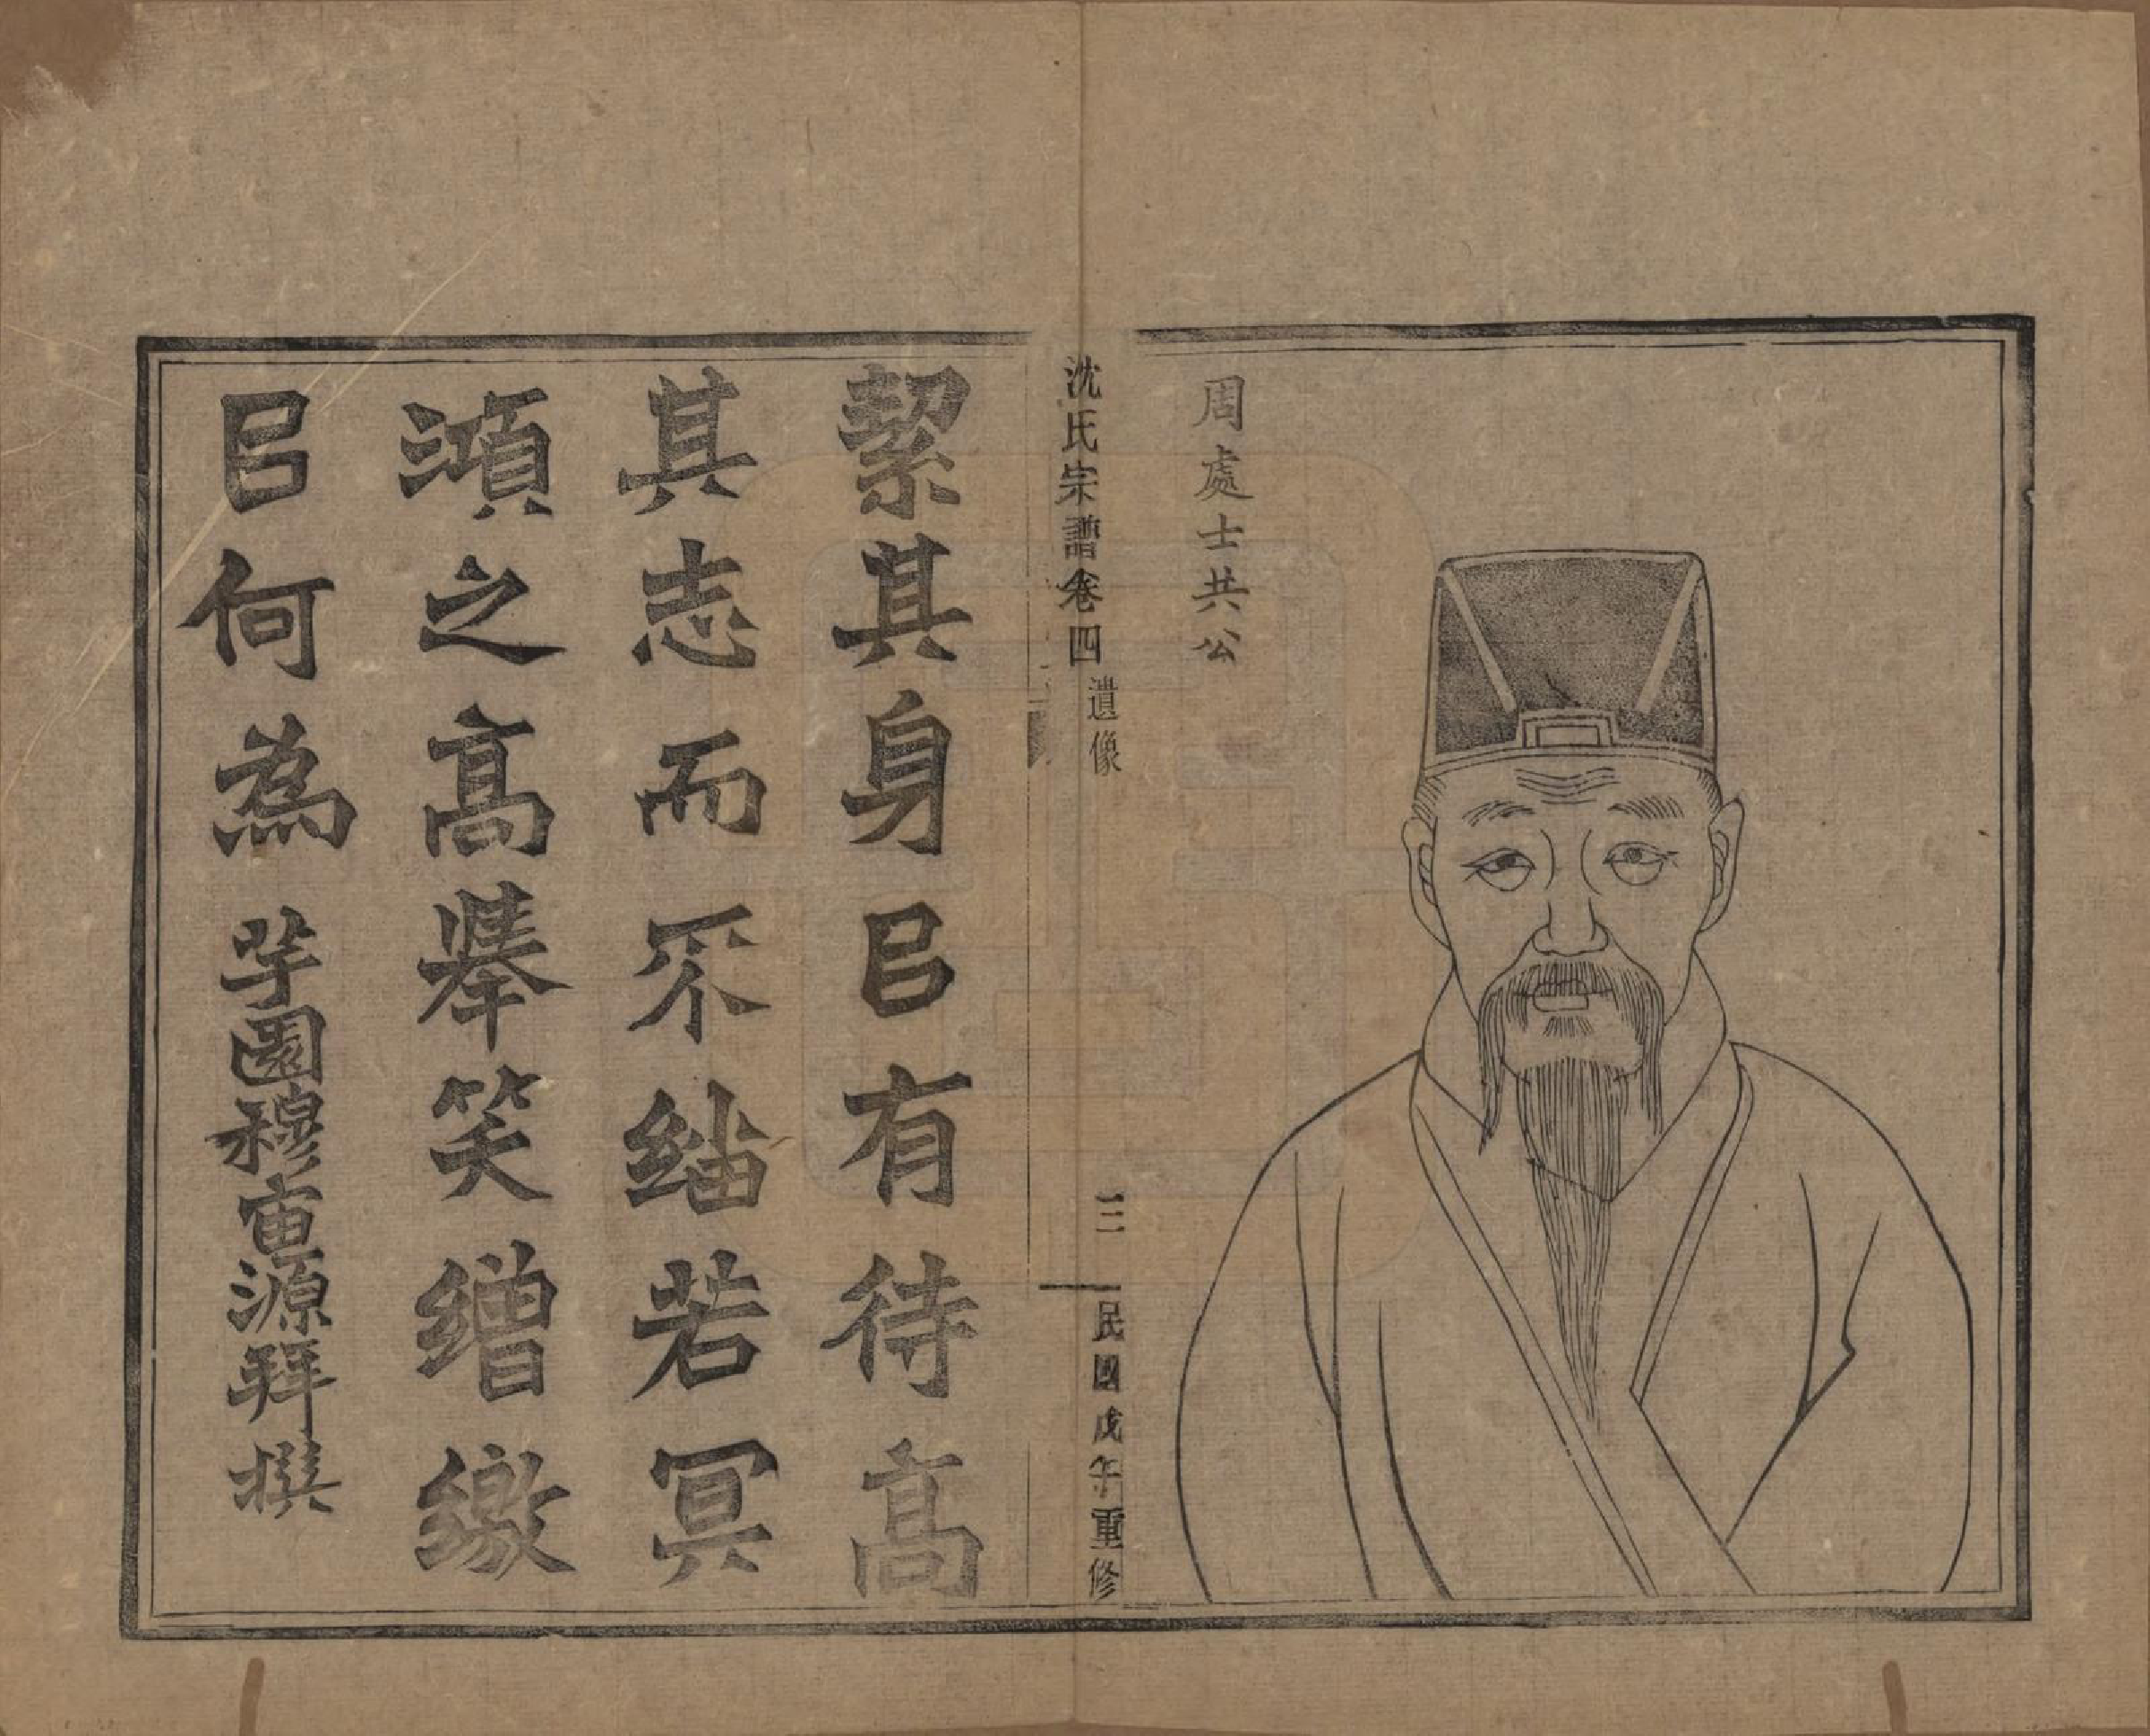 周處士共公
沈氏宗譜卷四 遺像 三 民國戊午重修
絜其身㠯有待高
其志而不紿若冥
澒之高舉笑繒繳
㠯何為 芋園穆寅源拜撰